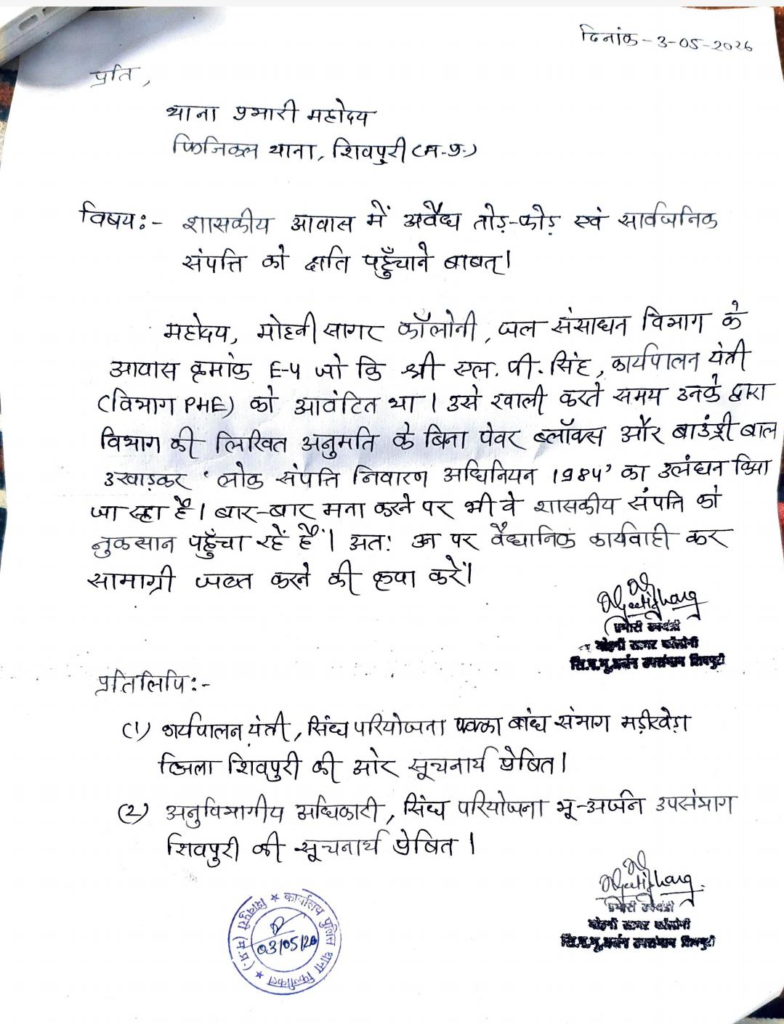 दिनांक-3-05-2026
प्रति,
थाना प्रभारी महोदय
फिजिकल थाना, शिवपुरी (म.प्र.)
विषय:- शासकीय आवास में अवैध तोड़-फोड़ एवं सार्वजनिक
संपत्ति को क्षति पहुँचाने बाबत्।
महोदय, मोहनी सागर कॉलोनी, जल संसाधन विभाग के
आवास क्रमांक E-4 जो कि श्री एल. पी. सिंह, कार्यपालन यंत्री
(विभाग PHE) को आवंटित था। उसे खाली करते समय उनके द्वारा
विभाग की लिखित अनुमति के बिना पेवर ब्लॉक्स और बाउंड्री बाल
उखाड़कर 'लोक संपत्ति निवारण अधिनियन 1984' का उलंघन किया
जा रहा है। बार-बार मना करने पर भी वे शासकीय संपत्ति को
नुकसान पहुँचा रहें हैं। अतः पर वैधानिक कार्यवाही कर
सामाग्री जब्त करने की कृपा करें।
प्रभारी उपयंत्री
मोहनी सागर कॉलोनी
सि.प.भू.अर्जन उपसंभाग शिवपुरी
प्रतिलिपि:-
(1) कार्यपालन यंत्री, सिंध परियोजना पक्का बांध संभाग मड़ीखेड़ा
जिला शिवपुरी की ओर सूचनार्थ प्रेषित।
(2) अनुविभागीय अधिकारी, सिंध परियोजना भू-अर्जन उपसंभाग
शिवपुरी की सूचनार्थ प्रेषित।
प्रभारी उपयंत्री
मोहनी सागर कॉलोनी
सि.प.भू.अर्जन उपसंभाग शिवपुरी
कार्यालय पुलिस थाना फिजीकल
शिवपुरी (म.प्र.)
03/05/26